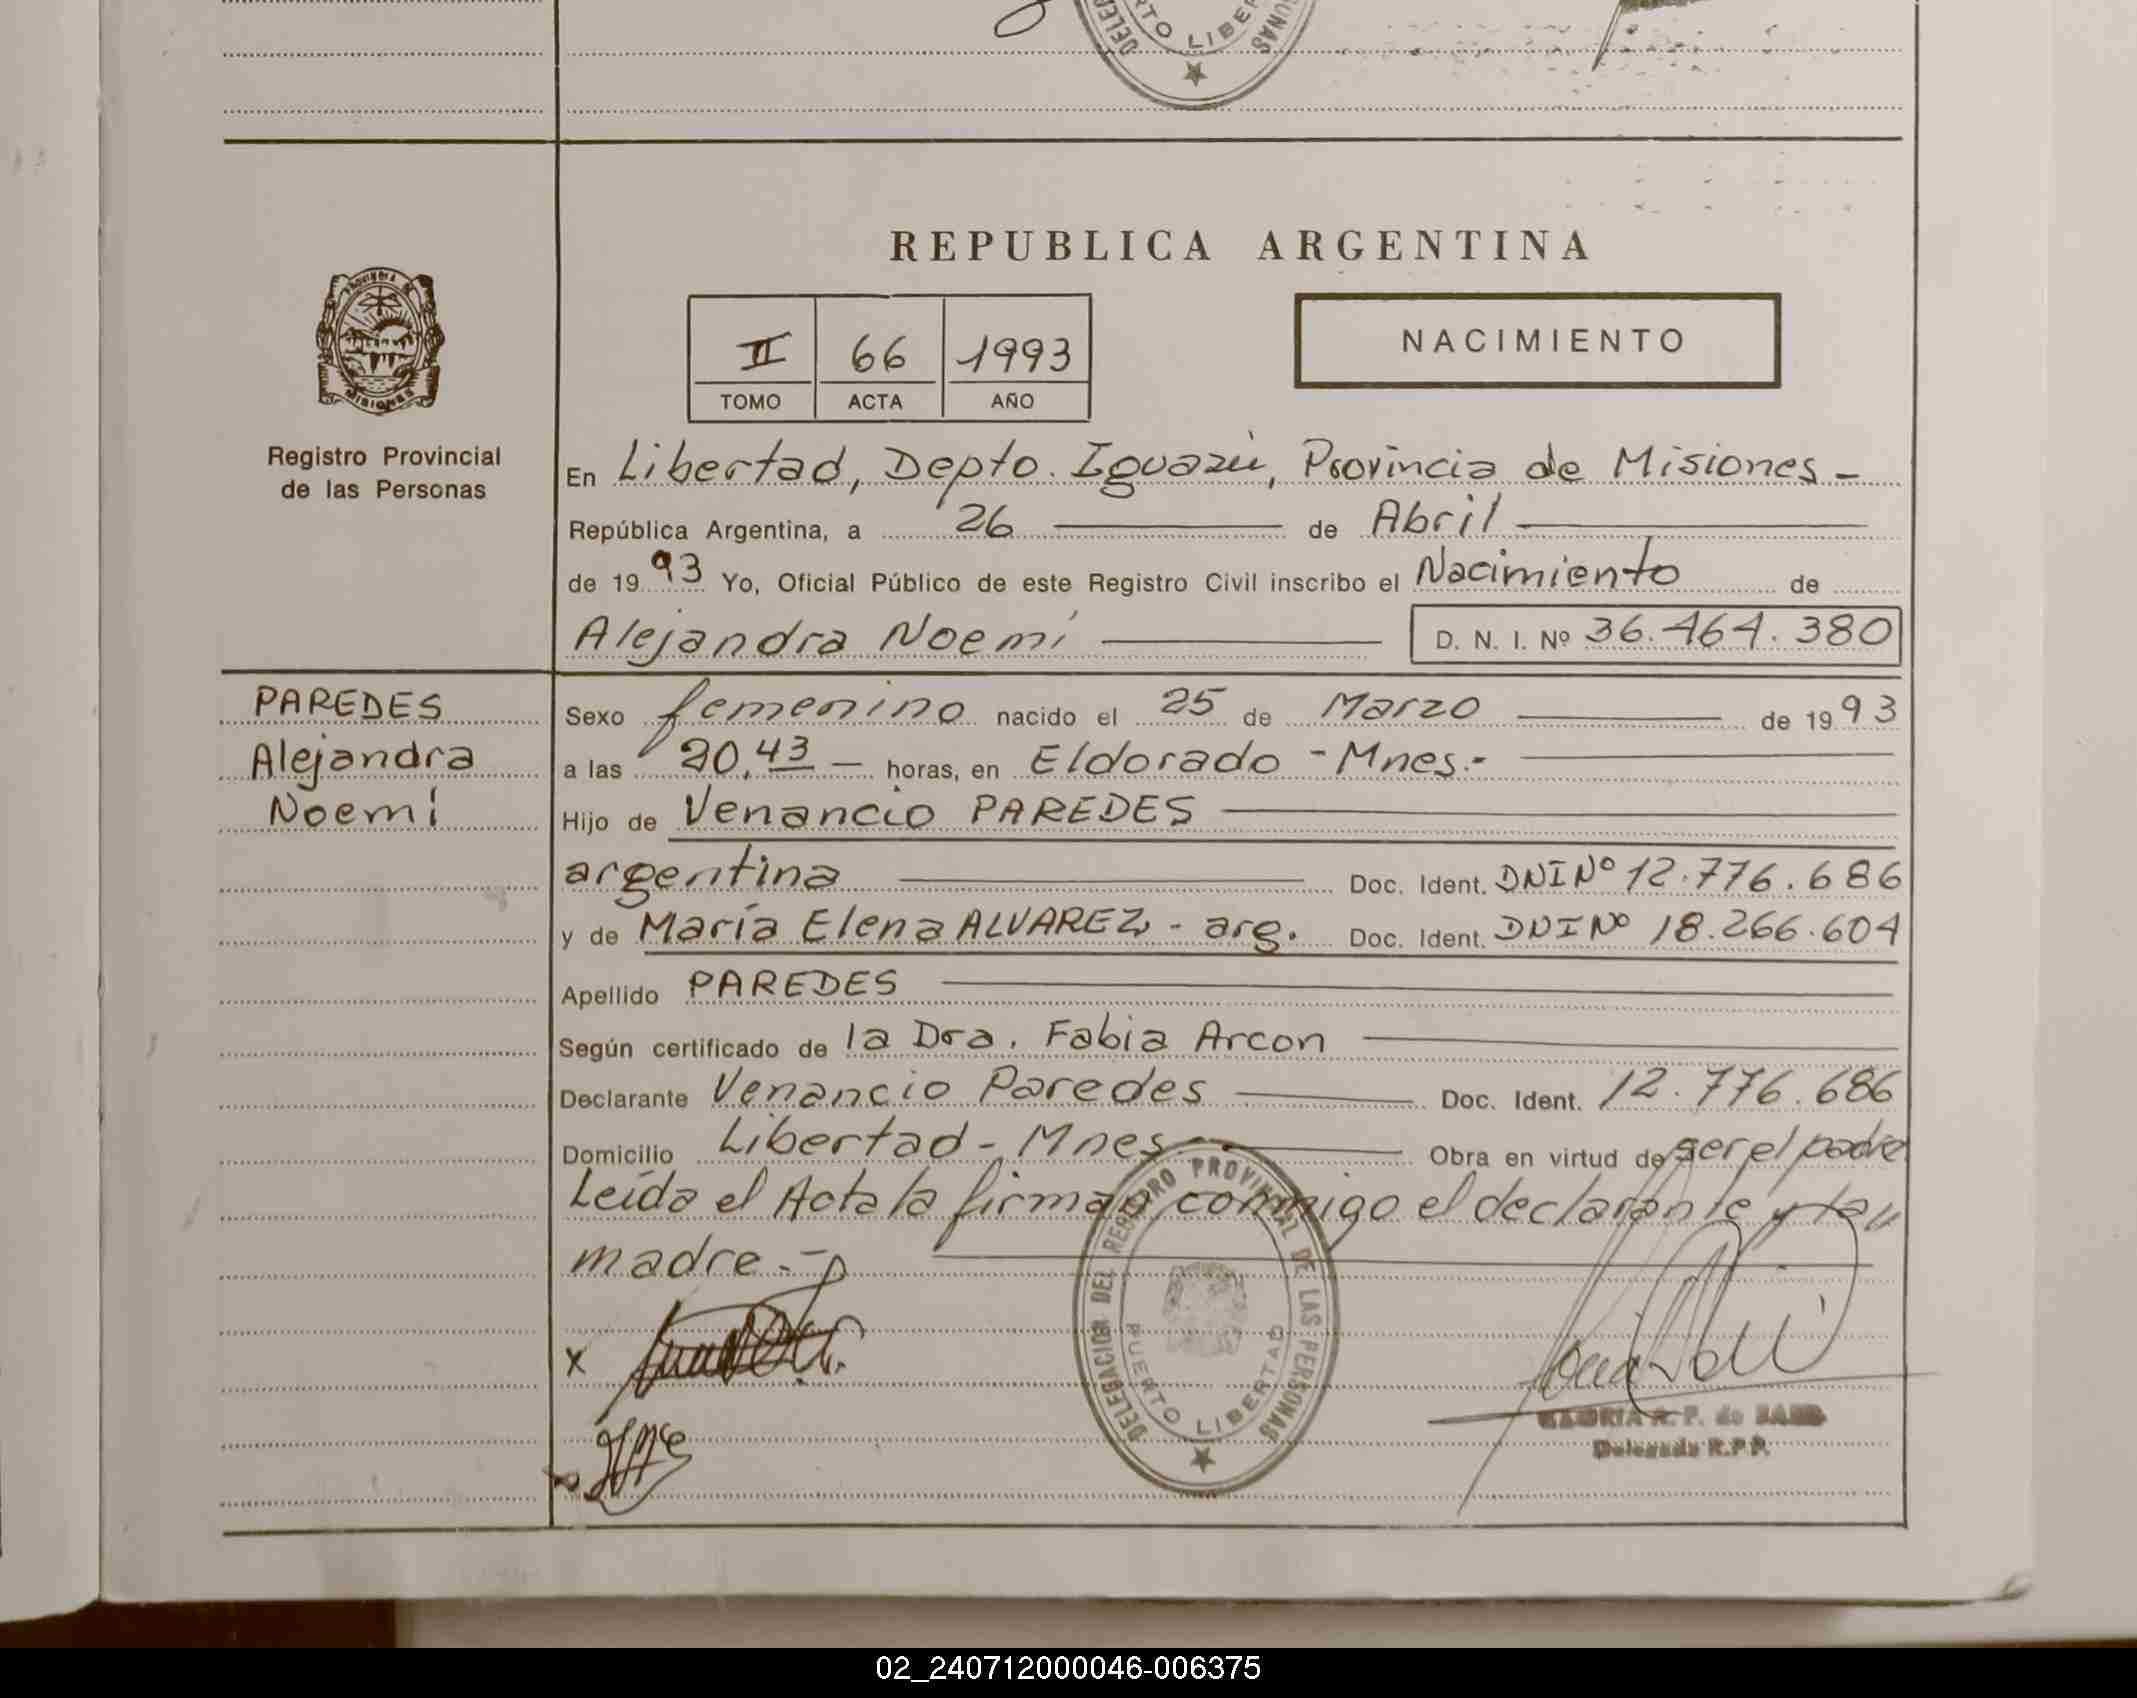 DELEG
RTO LIBER
UNAS
REPUBLICA ARGENTINA
PROVINCIA DE
MISIONES
II 66 1993
TOMO ACTA AÑO
NACIMIENTO
Registro Provincial
de las Personas
En Libertad, Depto. Iguazú, Provincia de Misiones -
República Argentina, a 26 de Abril
de 19 93 Yo, Oficial Público de este Registro Civil inscribo el Nacimiento de
Alejandra Noemí D. N. I. Nº 36.464.380
PAREDES
Alejandra
Noemí
Sexo femenino nacido el 25 de Marzo de 19 93
a las 20,43 - horas, en Eldorado - Mnes.-
Hijo de Venancio PAREDES
argentina Doc. Ident. DNI Nº 12.776.686
y de María Elena ALVAREZ, - arg. Doc. Ident. DNI Nº 18.266.604
Apellido PAREDES
Según certificado de la Dra. Fabia Arcon
Declarante Venancio Paredes Doc. Ident. 12.776.686
Domicilio Libertad - Mnes Obra en virtud de ser el padre
Leída el Acta la firman conmigo el declarante y la
madre.-
DELEGACION DEL REGISTRO PROVINCIAL DE LAS PERSONAS
PUERTO LIBERTAD
x
Delegada R.P.P.
02_240712000046-006375